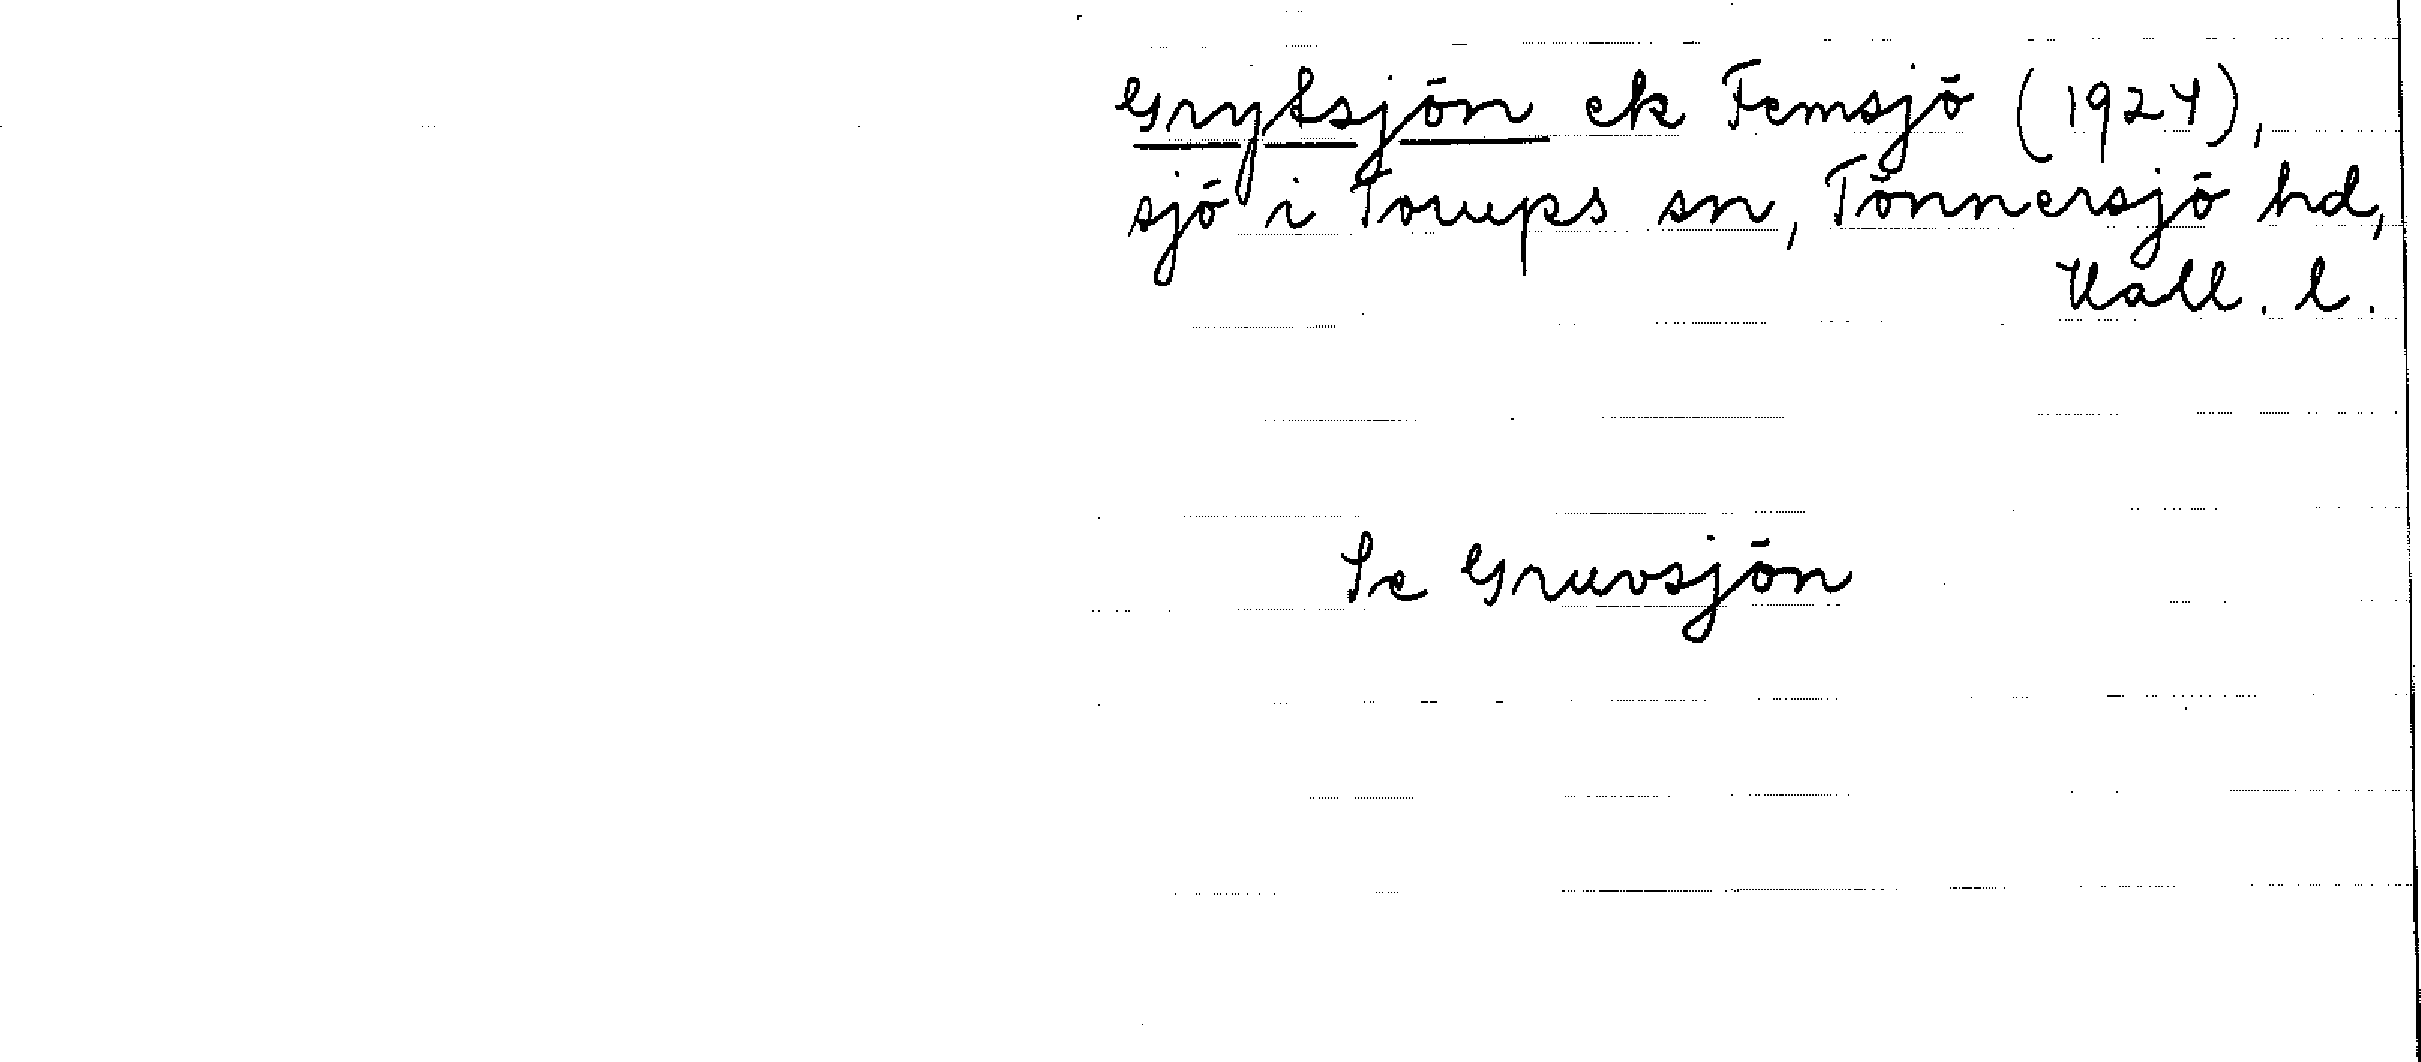 Grytsjön ek Femsjö (1924),
sjö i Torups sn, Tönnersjö hd,
Hall. l.
Se Gruvsjön